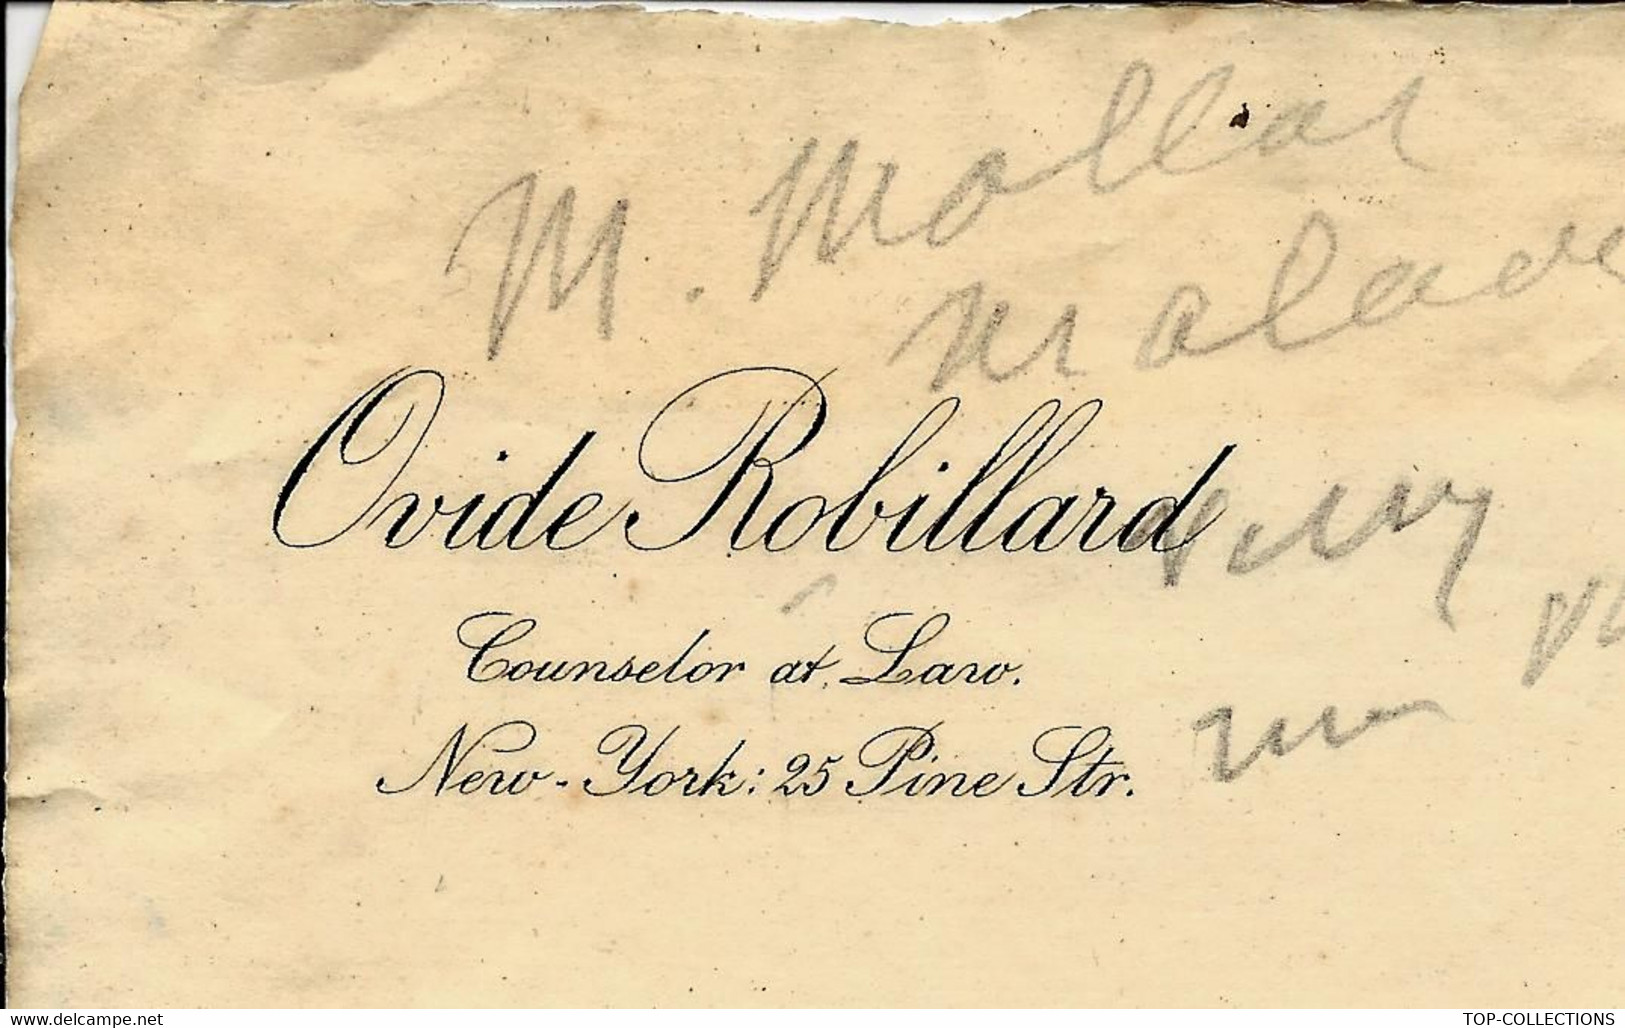 M. Mollat
malade
Ovide Robillard
Counselor at Law.
New-York: 25 Pine Str.
www.delcampe.net
TOP-COLLECTIONS